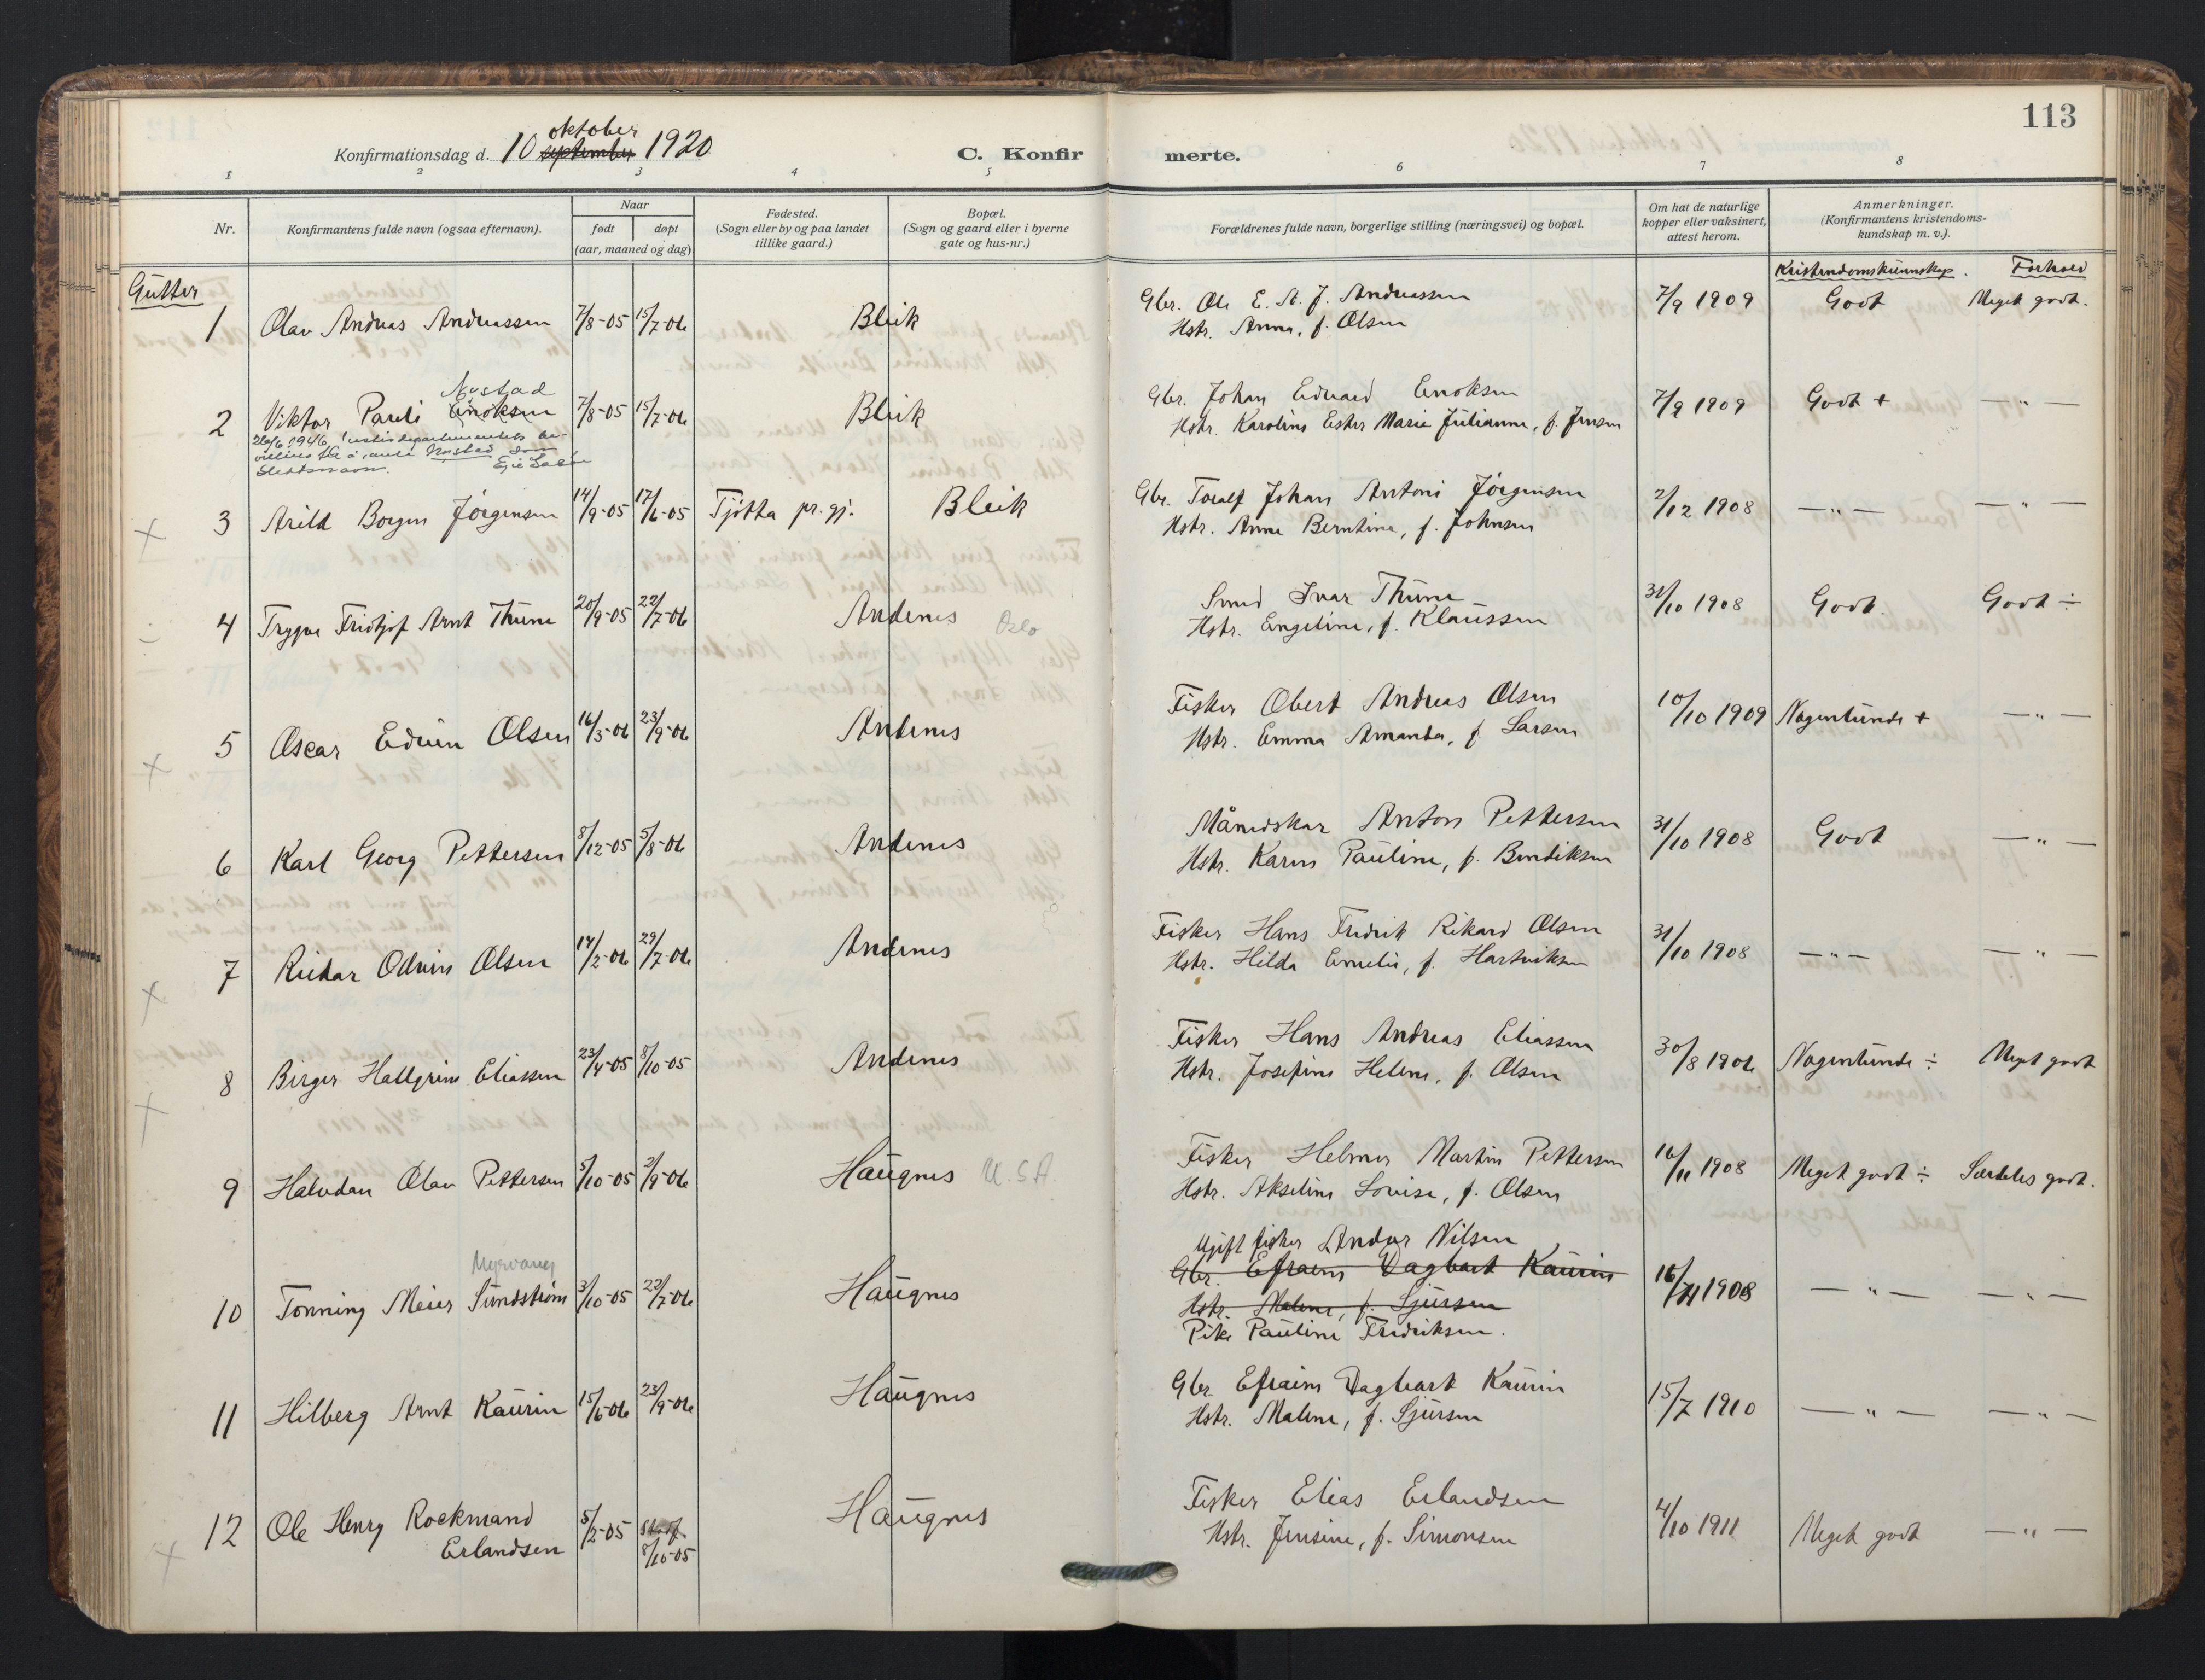 113
Konfirmationsdag d. 10 oktober 1920
september
C. Konfirmerte.
1 2 3 4 5 6 7 8
Nr.
Konfirmantens fulde navn (ogsaa efternavn).
Naar
født
døpt
(aar, maaned og dag)
Fødested.
(Sogn eller by og paa landet
tillike gaard.)
Bopæl.
(Sogn og gaard eller i byerne
gate og hus-nr.)
Forældrenes fulde navn, borgerlige stilling (næringsvei) og bopæl.
Om hat de naturlige
kopper eller vaksinert,
attest herom.
Anmerkninger.
(Konfirmantens kristendoms-
kundskap m. v.).
Gutter
Kristendomskunnskap. Forhold
1 Olav Andreas Andreassen 7/8-05 15/7-06 Bleik Gbr. Ole E. A. J. Andreassen 7/9 1909 Godt Meget godt.
Hstr. Anna, f. Olsen
Nøstad
2 Viktor Pareli Enoksen 7/8-05 15/7-06 Bleik Gbr. Johan Edvard Enoksen 7/9 1909 Godt + — " —
Hstr. Karoline Ester Marie Julianne, f. Jensen
26/6 1946 justisdepartementets be-
villing til å anta Nøstad som
slektsnavn.
3 Arild Borgen Jörgensen 14/9-05 17/6-05 Tjötta pr.gj. Bleik Gbr. Toralf Johan Antoni Jörgensen 2/12 1908 — " — — " —
Hstr. Anna Berntine, f. Johnsen
4 Trygve Fridtjof Arnt Thune 20/9-05 22/7-06 Andenes Oslo Smed Ivar Thune 31/10 1908 Godt. Godt ÷
Hstr. Engeline, f. Klaussen
5 Oscar Edvin Olsen 16/3-06 23/9-06 Andenes Fisker Obert Andreas Olsen 10/10 1909 Nogenlunde + — " —
Hstr. Emma Amanda, f. Larsen
6 Karl Georg Pettersen 8/12-05 5/8-06 Andenes Månedskar Anton Pettersen 31/10 1908 Godt — " —
Hstr. Karen Pauline, f. Bendiksen
7 Rickar Odvin Olsen 14/2-06 29/7-06 Andenes Fisker Hans Fredrik Rikard Olsen 31/10 1908 — " — — " —
Hstr. Hilda Emelie, f. Hartviksen
8 Birger Hallgrim Eliassen 23/4-05 8/10-05 Andenes Fisker Hans Andreas Eliassen 30/8 1906 Nogenlunde ÷ Meget godt
Hstr. Josefine Helene, f. Olsen
9 Halvdan Olav Pettersen 5/10-05 2/9-06 Haugnes U.S.A. Fisker Helmer Martin Pettersen 16/11 1908 Meget godt ÷ Særdeles godt.
Hstr. Akseline Lovise, f. Olsen
Myrvang
Ugift fisker Andor Nilsen
10 Tonning Meier Sundström 3/10-05 22/7-06 Haugnes Gbr. Efraim Dagbart Kaurin 16/11 1908 — " — — " —
Hstr. Malene, f. Sjursen
Pike Pauline Fredriksen.
11 Hilberg Arnt Kaurin 15/6-06 23/9-06 Haugnes Gbr Efraim Dagbart Kaurin 15/7 1910 — " — — " —
Hstr. Malene, f. Sjursen
12 Ole Henry Rockmand 5/2-05 Haugnes Fisker Elias Erlandsen 4/10 1911 Meget godt — " —
Erlandsen 8/10-05 Hstr. Jensine, f. Simonsen